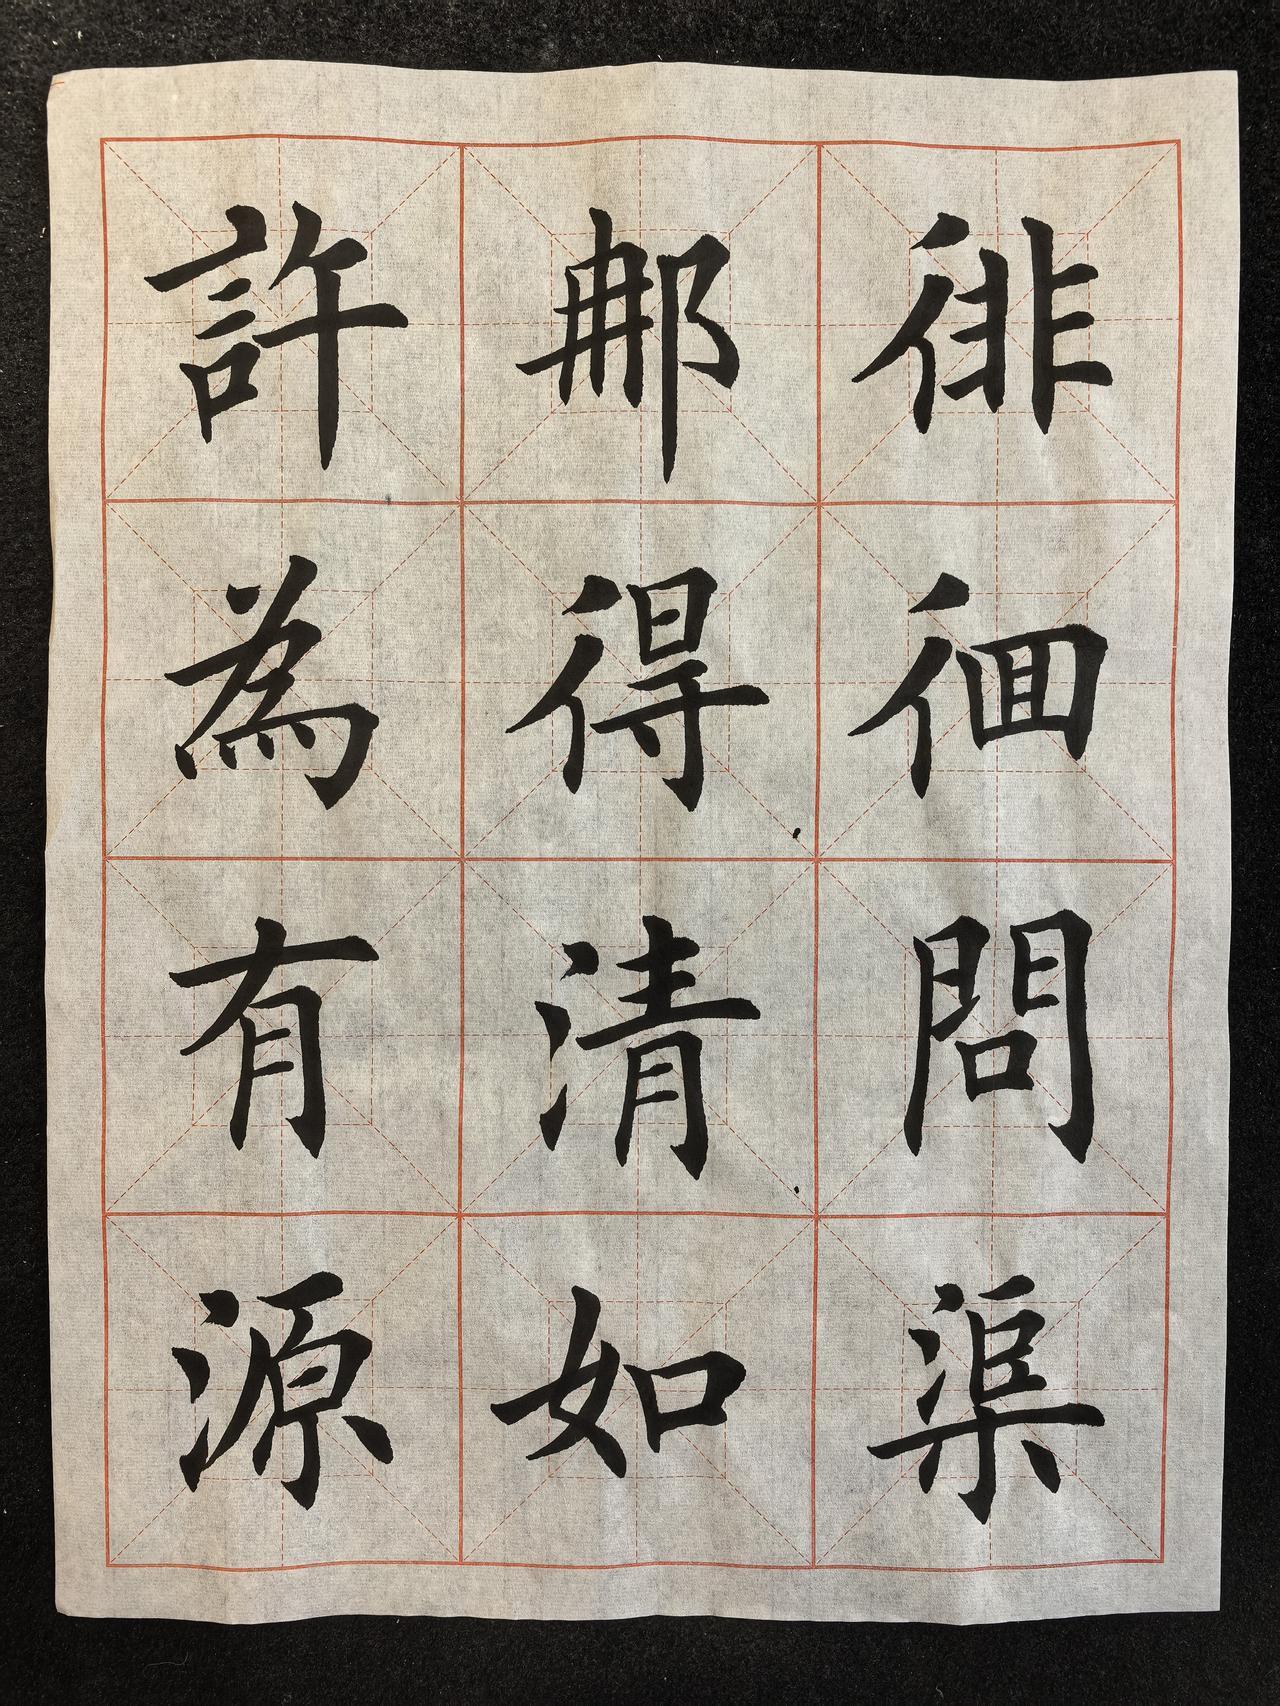 徘徊問渠
那得清如
許為有源